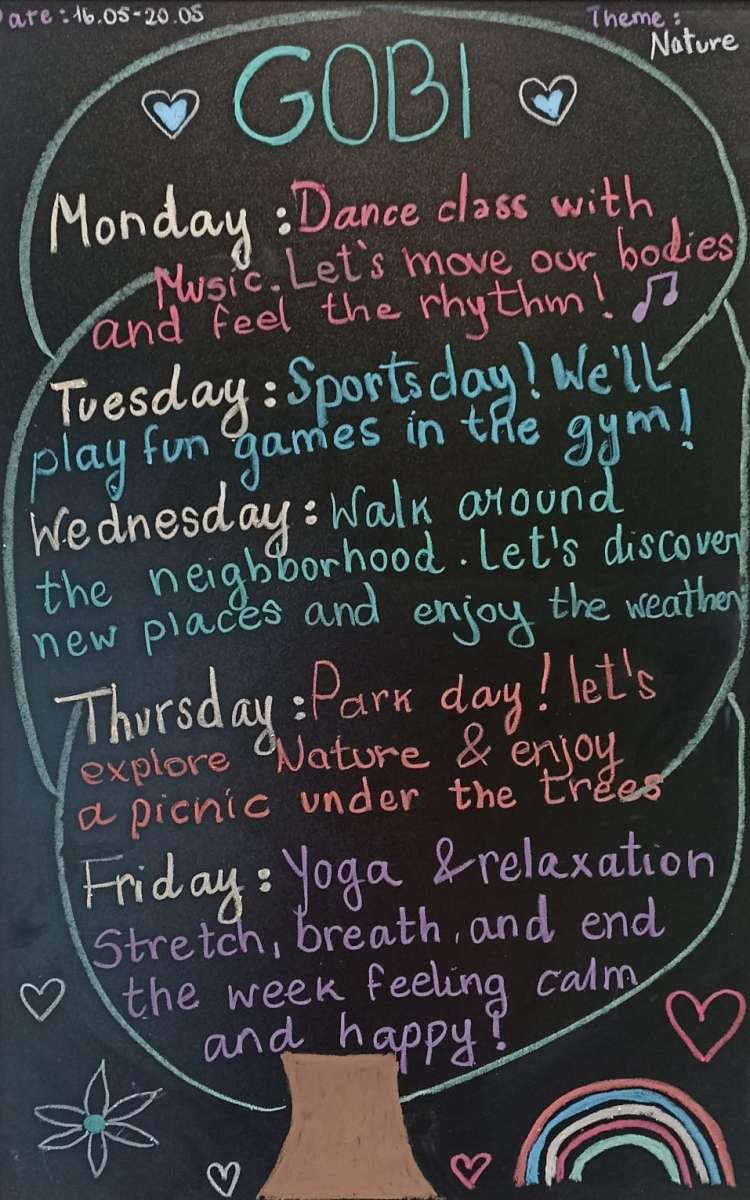 Date: 16.05-20.05
Theme:
Nature
GOBI
Monday: Dance class with
Music. Let's move our bodies
and feel the rhythm!
Tuesday: Sportsday! We'll
play fun games in the gym!
Wednesday: Walk around
the neighborhood. Let's discover
new places and enjoy the weather
Thursday: Park day! let's
explore Nature & enjoy
a picnic under the trees
Friday: Yoga & relaxation
Stretch, breath, and end
the week feeling calm
and happy!